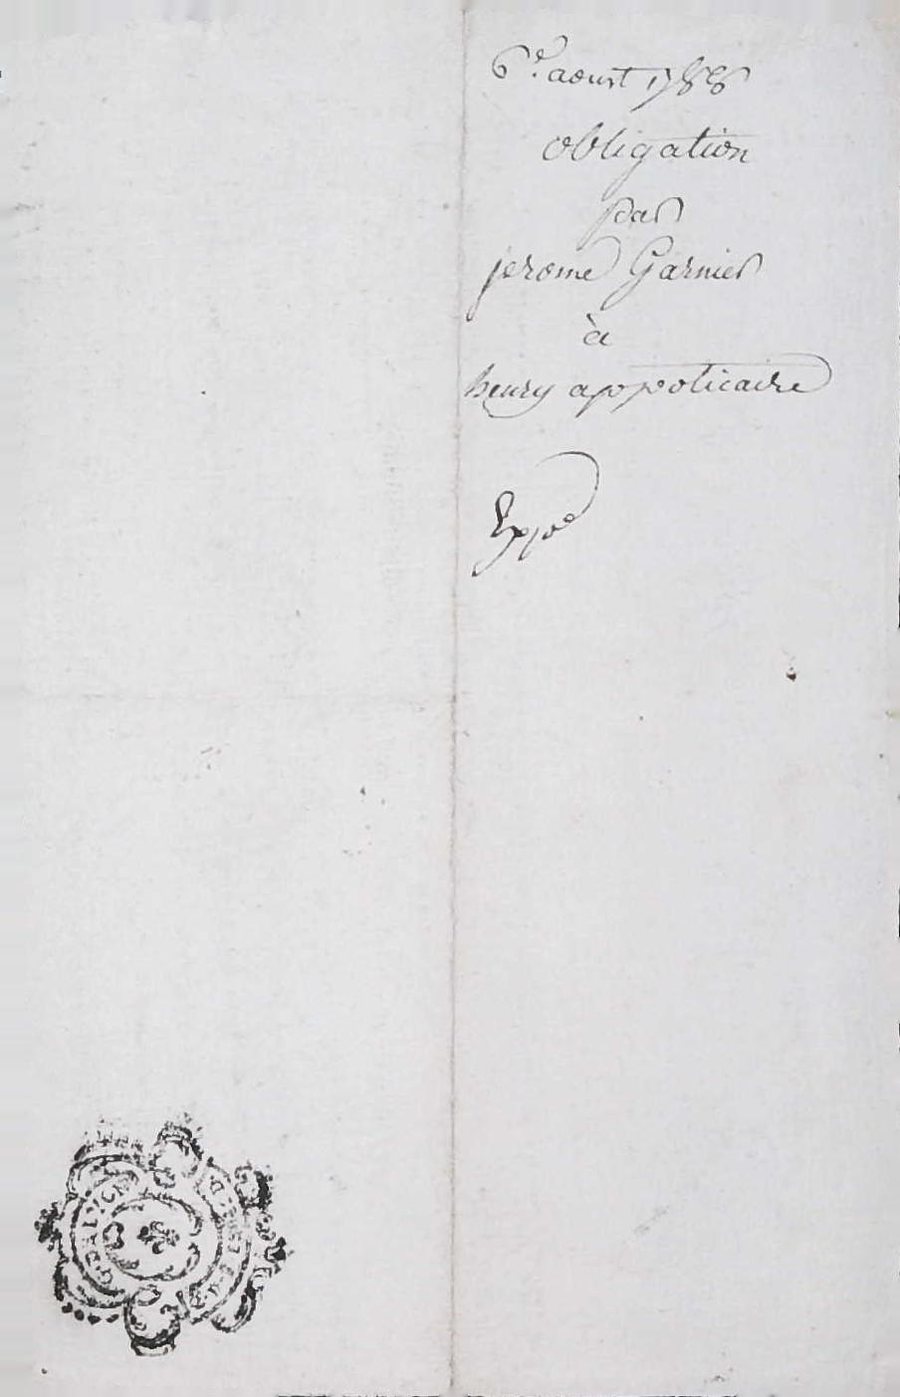 6e. aoust 1788
obligation
par
jerome Garnier
à
henry appoticaire
Exp.e